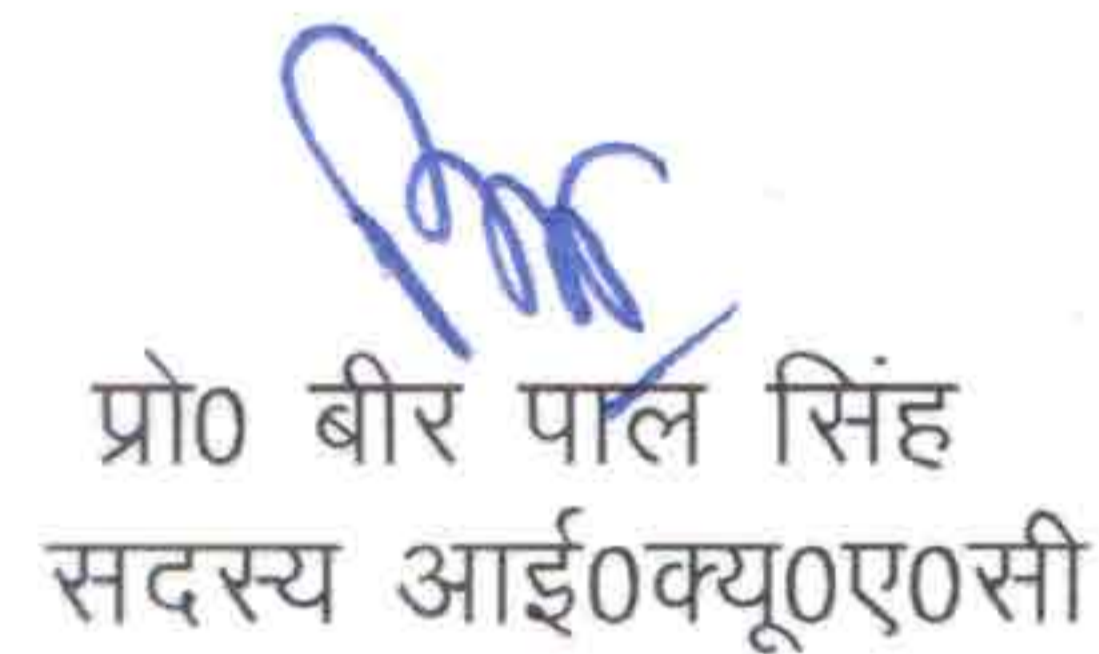 प्रो0 बीर पाल सिंह
सदस्य आई0क्यू0ए0सी